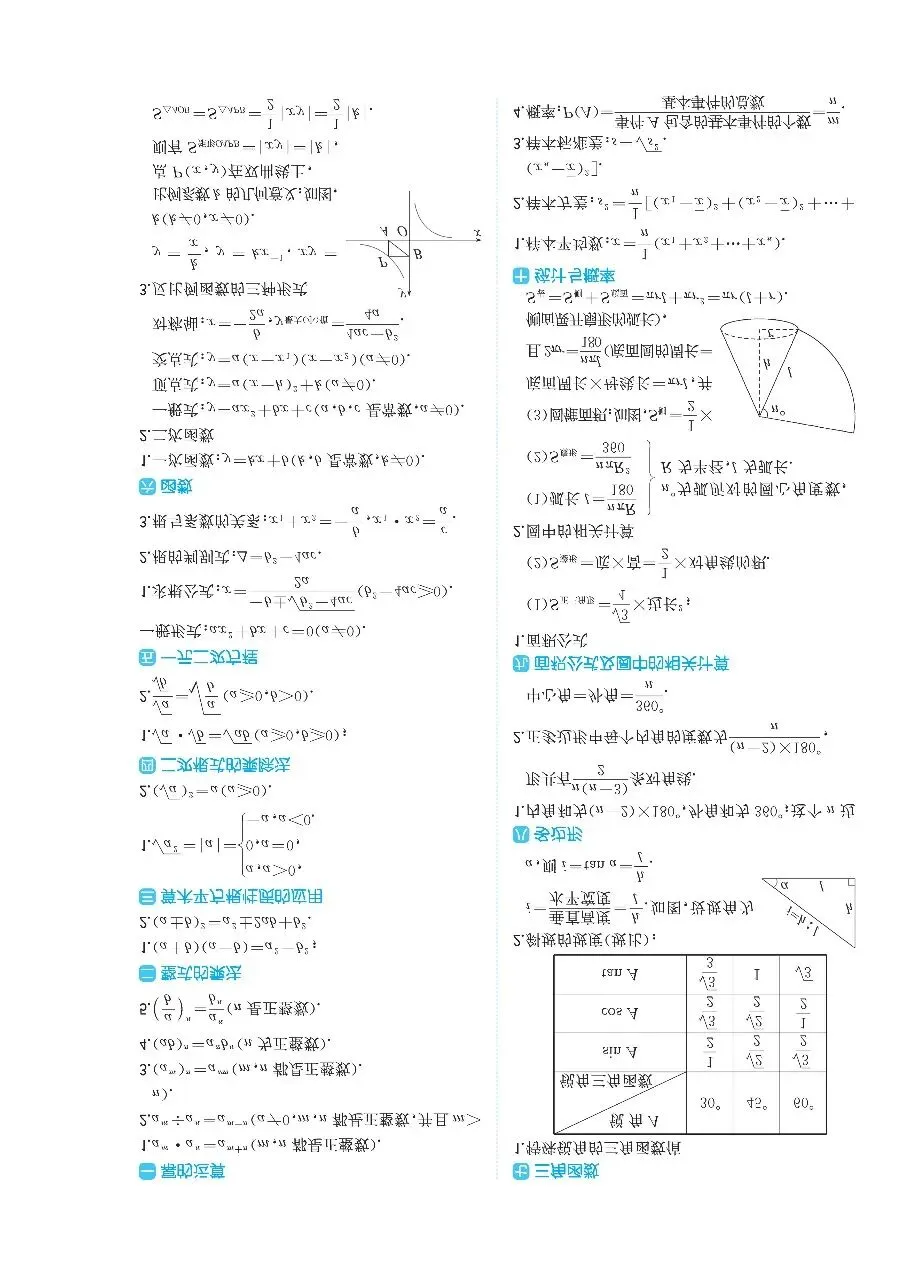 一 幂的运算
1.aᵐ·aⁿ=aᵐ⁺ⁿ(m,n 都是正整数).
2.aᵐ÷aⁿ=aᵐ⁻ⁿ(a≠0,m,n 都是正整数,并且 m>
n).
3.(aᵐ)ⁿ=aᵐⁿ(m,n 都是正整数).
4.(ab)ⁿ=aⁿbⁿ(n 为正整数).
5.(a/b)ⁿ=aⁿ/bⁿ(n 是正整数).
二 整式的乘法
1.(a+b)(a-b)=a²-b²;
2.(a±b)²=a²±2ab+b².
三 算术平方根性质的应用
1.√a²=|a|={a,a>0,
0,a=0,
-a,a<0.
2.(√a)²=a(a≥0).
四 二次根式的乘除法
1.√a·√b=√ab(a≥0,b≥0);
2.√a/√b=√(a/b)(a≥0,b>0).
五 一元二次方程
一般形式:ax²+bx+c=0(a≠0).
1.求根公式:x=(-b±√(b²-4ac))/2a(b²-4ac≥0).
2.根的判别式:Δ=b²-4ac.
3.根与系数的关系:x₁+x₂=-b/a,x₁·x₂=c/a.
六 函数
1.一次函数:y=kx+b(k,b 是常数,k≠0).
2.二次函数
一般式:y=ax²+bx+c(a,b,c 是常数,a≠0).
顶点式:y=a(x-h)²+k(a≠0).
交点式:y=a(x-x₁)(x-x₂)(a≠0).
对称轴:x=-b/2a,y最大(小)值=(4ac-b²)/4a.
3.反比例函数的三种形式
y=k/x,y=kx⁻¹,xy=
k(k≠0,x≠0).
比例系数 k 的几何意义:如图,
点 P(x,y)在双曲线上,
则有 S矩形OAPB=|xy|=|k|,
S△AOB=S△APB=1/2|xy|=1/2|k|.
y
P
B
A
O
x
七 三角函数
1.特殊锐角的三角函数值
锐 角 A
锐角三角函数
30° 45° 60°
sin A 1/2 √2/2 √3/2
cos A √3/2 √2/2 1/2
tan A √3/3 1 √3
2.斜坡的坡度(坡比):
i=垂直高度/水平宽度=h/l.如图,设坡角为
α,则 i=tan α=h/l.
i=h:l
h
α
l
八 多边形
1.内角和为(n-2)×180°,外角和为 360°;这个 n 边
形共有n(n-3)/2条对角线.
2.正多边形中每个内角的度数为(n-2)×180°/n,
中心角=外角=360°/n.
九 面积公式及圆中的相关计算
1.面积公式
(1)S正三角形=√3/4×边长²;
(2)S菱形=底×高=1/2×对角线的积.
2.圆中的相关计算
(1)弧长 l=nπR/180
(2)S扇形=nπR²/360
n°为弧所对的圆心角度数,
R 为半径,l 为弧长.
(3)圆锥面积:如图,S侧=1/2×
底面周长×母线长=πrl,并
且 2πr=nπl/180(底面圆的周长=
侧面展开扇形的弧长),
S表=S侧+S底面=πrl+πr²=πr(l+r).
n°
l
h
r
十 统计与概率
1.样本平均数:x̄=1/n(x₁+x₂+⋯+xₙ).
2.样本方差:s²=1/n[(x₁-x̄)²+(x₂-x̄)²+⋯+
(xₙ-x̄)²].
3.样本标准差:s=√s².
4.概率:P(A)=事件 A 包含的基本事件的个数/基本事件的总数=m/n.